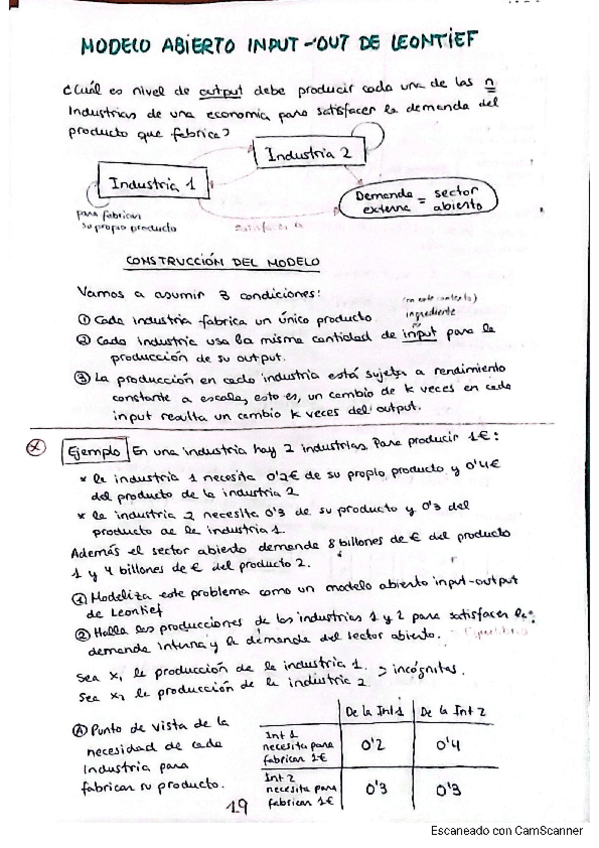 MODELO ABIERTO INPUT-OUT DE LEONTIEF
¿Cuál es nivel de output debe producir cada una de las n
Industrias de una economía para satisfacer la demanda del
producto que fabrica?
Industria 2
Industria 1
Demanda externa = sector abierto
para fabricar
su propio producto
satisfacer la
CONSTRUCCIÓN DEL MODELO
Vamos a asumir 3 condiciones:
(en este contexto)
① Cada industria fabrica un único producto
ingrediente
② Cada Industria usa la misma cantidad de input para la
producción de su output.
③ La producción en cada industria está sujeta a rendimiento
constante a escala, esto es, un cambio de k veces en cada
input resulta un cambio k veces del output.
Ejemplo En una industria hay 2 industrias. Para producir 1€:
* la industria 1 necesita 0'2€ de su propio producto y 0'4€
del producto de la industria 2
* la industria 2 necesita 0'3 de su producto y 0'3 del
producto de la industria 1.
Además el sector abierto demanda 8 billones de € del producto
1 y 4 billones de € del producto 2.
① Modeliza este problema como un modelo abierto input-output
de Leontief
② Halla las producciones de las industrias 1 y 2 para satisfacer la
demanda interna y la demanda del sector abierto.
Sea x₁ la producción de la industria 1. > incógnitas.
Sea x₂ la producción de la industria 2
Ⓐ Punto de vista de la
necesidad de cada
Industria para
fabricar su producto.
De la Int 1 De la Int 2
Int 1
necesita para
fabricar 1€
0'2 0'4
Int 2
necesita para
fabricar 1€
0'3 0'3
19
Escaneado con CamScanner